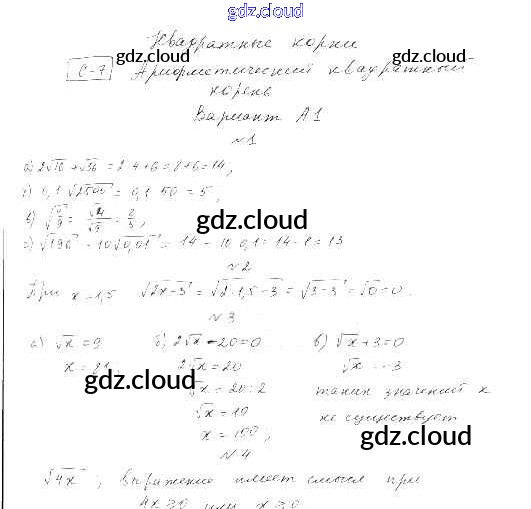 gdz.cloud
Квадратные корни
gdz.cloud gdz.cloud
С-7 Арифметический квадратный
корень
Вариант А1
№1
а) 2√16 + √36 = 2·4+6 = 8+6 = 14;
б) 0,1·√2500 = 0,1·50 = 5;
в) √(4/9) = √4/√9 = 2/3;
г) √196 - 10√0,01 = 14 - 10·0,1 = 14-1 = 13
gdz.cloud
№2
При x = 1,5 √2x-3 = √2·1,5-3 = √3-3 = √0 = 0.
№3
а) √x = 9 б) 2√x - 20 = 0 в) √x + 3 = 0
x = 81 2√x = 20 √x = -3
gdz.cloud
√x = 20:2 таких значений x
√x = 10 не существует
x = 100;
gdz.cloud
№4
√4x; выражение имеет смысл при
4x ≥ 0 или x ≥ 0